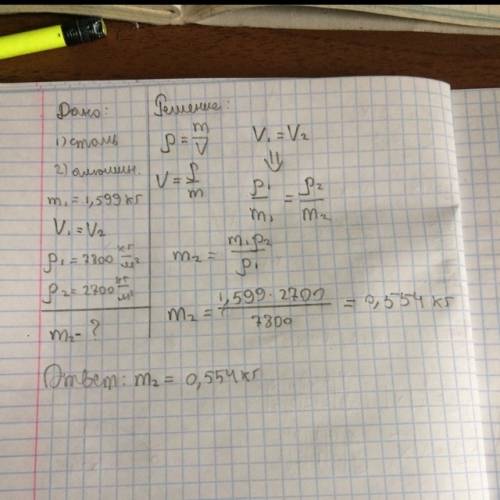 Дано:
1) сталь
2) алюмин.
m₁ = 1,599 кг
V₁ = V₂
ρ₁ = 7800 кг/м³
ρ₂ = 2700 кг/м³
m₂ - ?
Решение:
ρ = m/V
V₁ = V₂
⇓
V = ρ/m
ρ₁/m₁ = ρ₂/m₂
m₂ = m₁ρ₂/ρ₁
m₂ = 1,599 · 2700/7800 = 0,554 кг
Ответ: m₂ = 0,554 кг